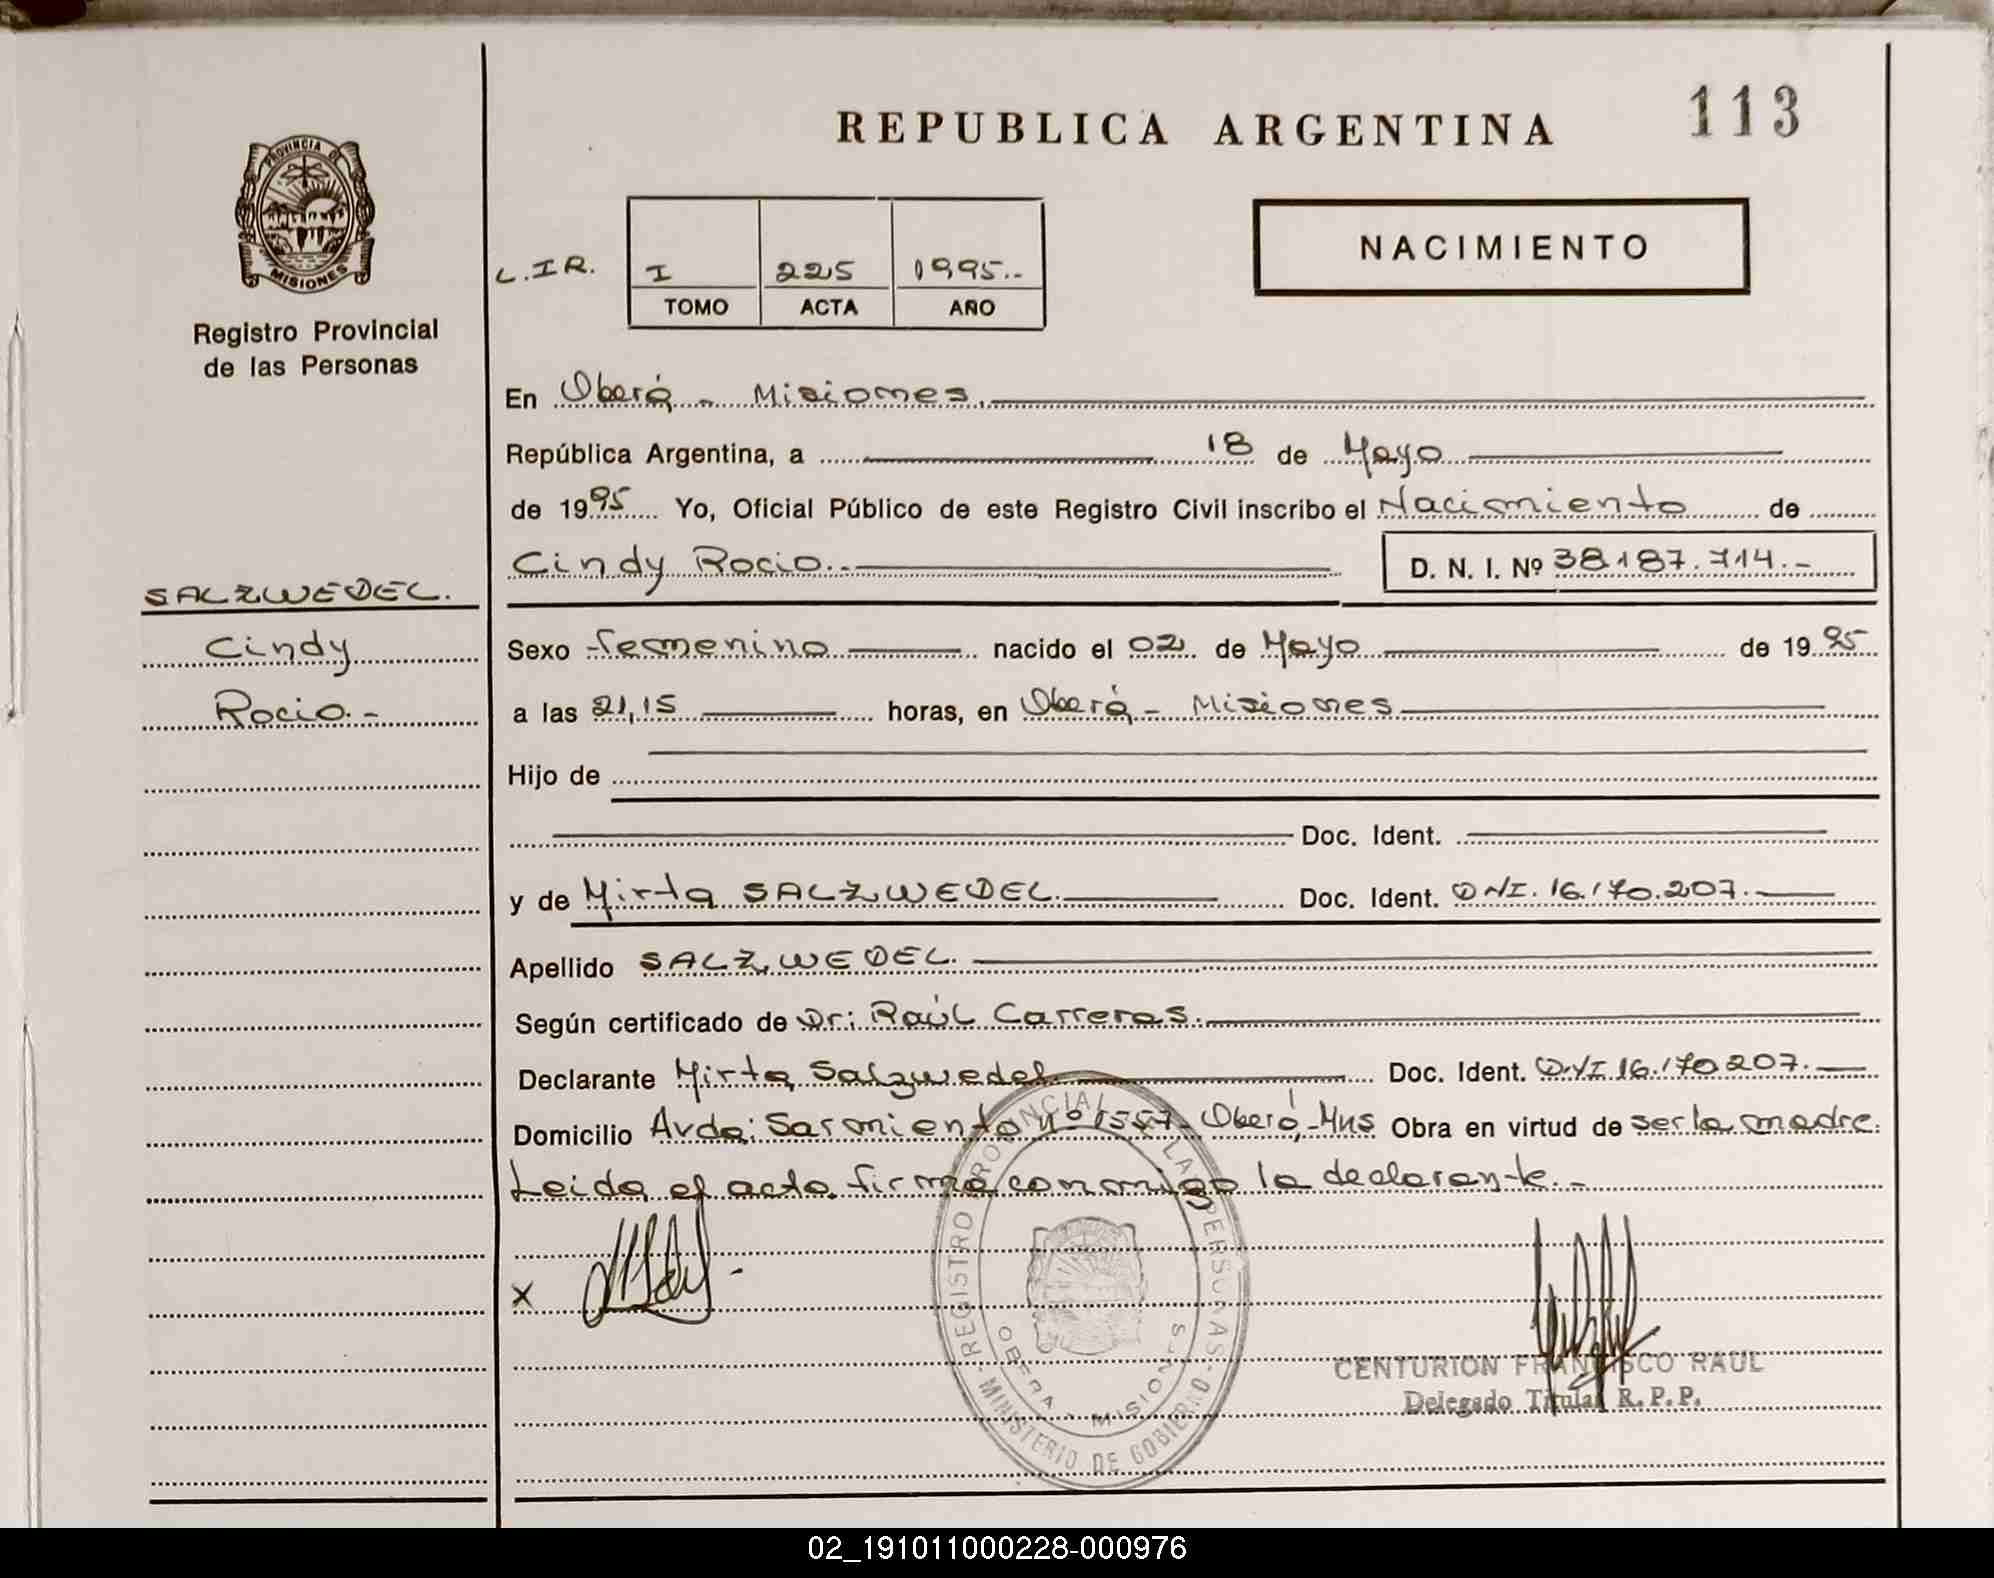 REPUBLICA ARGENTINA
113
PROVINCIA DE MISIONES
Registro Provincial
de las Personas
L.I.R.
I 225 1995.-
TOMO ACTA AÑO
NACIMIENTO
En Oberá - Misiones.
República Argentina, a 18 de Mayo
de 1995 Yo, Oficial Público de este Registro Civil inscribo el Nacimiento de
Cindy Rocio.- D. N. I. Nº 38.187.714.-
SALZWEDEL.
Cindy
Rocio.-
Sexo femenino nacido el 02 de Mayo de 1995
a las 21,15 horas, en Oberá - Misiones
Hijo de
Doc. Ident.
y de Mirta SALZWEDEL. Doc. Ident. DNI. 16.170.207.-
Apellido SALZWEDEL.
Según certificado de Dr: Raúl Carreras.
Declarante Mirta Salzwedel Doc. Ident. DNI 16.170.207.-
Domicilio Avda: Sarmiento nº 1557- Oberá,-Mns Obra en virtud de ser la madre.
Leida el acta firma conmigo la declarante.-
x
REGISTRO PROVINCIAL LAS PERSONAS - MINISTERIO DE GOBIERNO
OBERA - MISIONES
CENTURION FRANCISCO RAUL
Delegado Titular R.P.P.
02_191011000228-000976